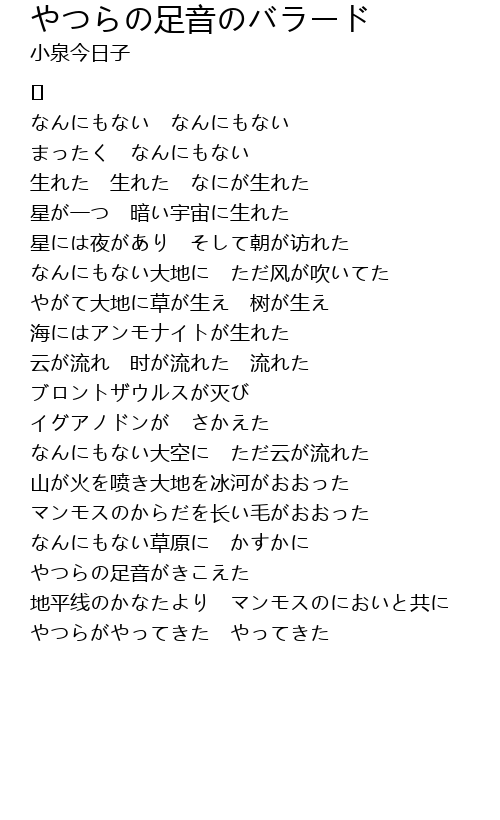 やつらの足音のバラード
小泉今日子
なんにもない　なんにもない
まったく　なんにもない
生れた　生れた　なにが生れた
星が一つ　暗い宇宙に生れた
星には夜があり　そして朝が访れた
なんにもない大地に　ただ风が吹いてた
やがて大地に草が生え　树が生え
海にはアンモナイトが生れた
云が流れ　时が流れた　流れた
ブロントザウルスが灭び
イグアノドンが　さかえた
なんにもない大空に　ただ云が流れた
山が火を喷き大地を冰河がおおった
マンモスのからだを长い毛がおおった
なんにもない草原に　かすかに
やつらの足音がきこえた
地平线のかなたより　マンモスのにおいと共に
やつらがやってきた　やってきた